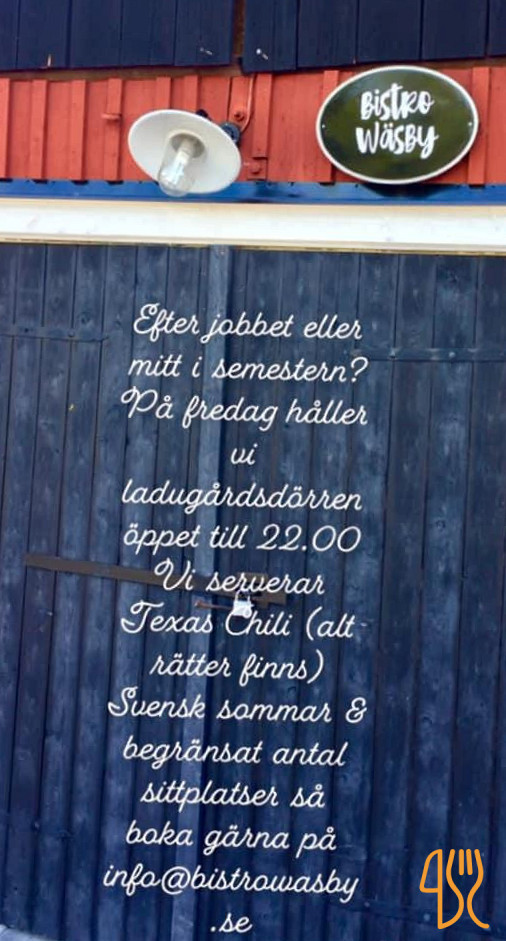 Bistro
Wäsby
Efter jobbet eller
mitt i semestern?
På fredag håller
vi
ladugårdsdörren
öppet till 22.00
Vi serverar
Texas Chili (alt
rätter finns)
Svensk sommar &
begränsat antal
sittplatser så
boka gärna på
info@bistrowasby
.se